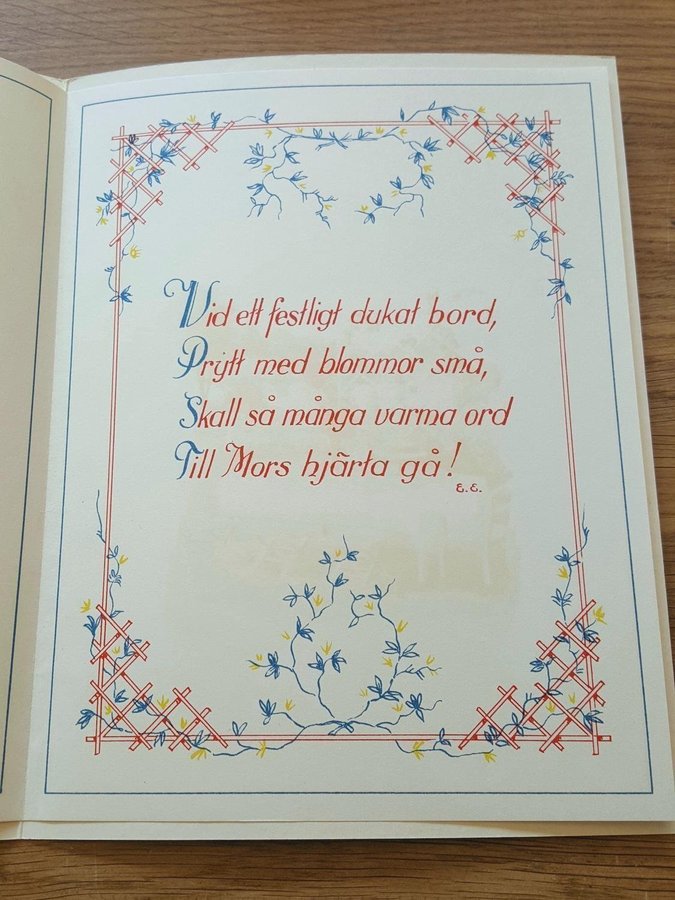 Vid ett festligt dukat bord,
Prytt med blommor små,
Skall så många varma ord
Till Mors hjärta gå!
E.E.